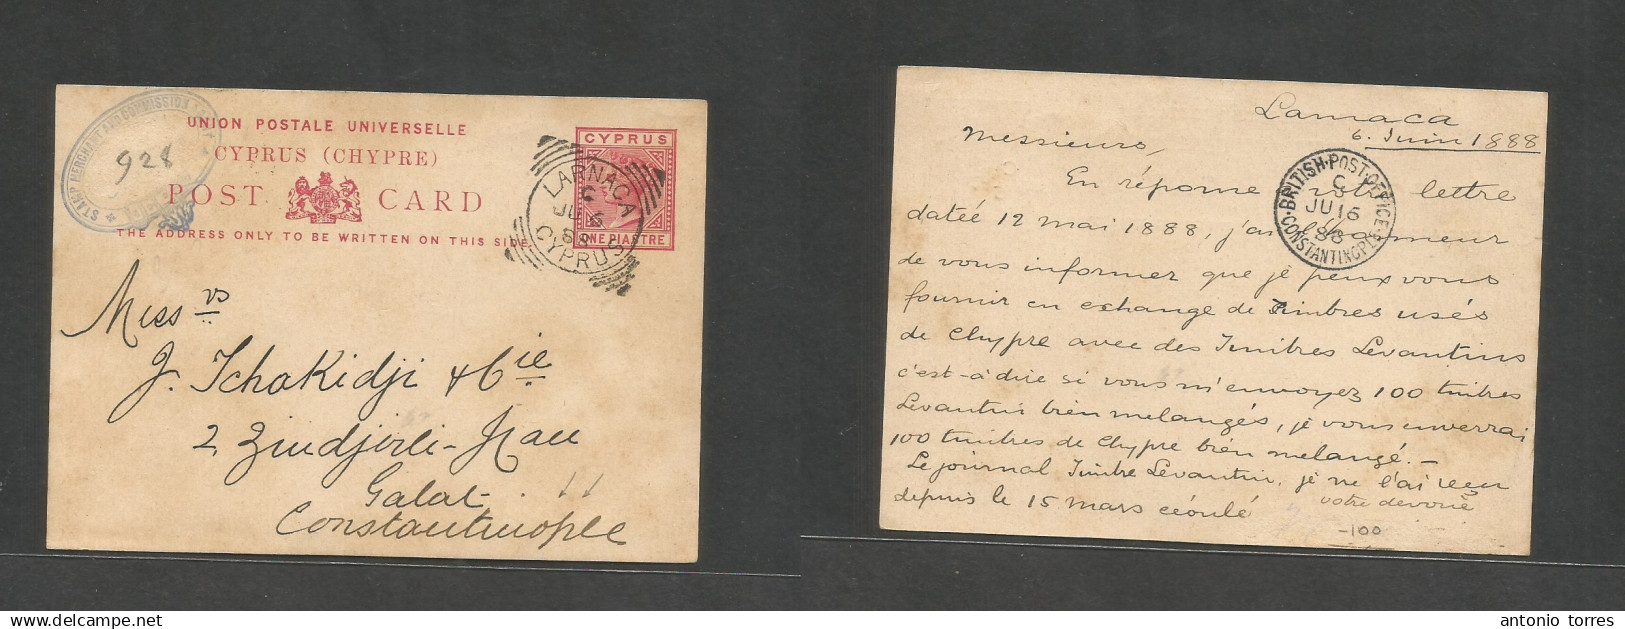 STAMP MERCHANT AND COMMISSION
928
UNION POSTALE UNIVERSELLE
CYPRUS (CHYPRE)
POST CARD
THE ADDRESS ONLY TO BE WRITTEN ON THIS SIDE
CYPRUS
ONE PIASTRE
LARNACA
C
JU 6
88
CYPRUS
Mess vs
J. Tchakidji & Cie
2 Zindjirli-Han
Galat
Constantinople
Larnaca
6. Juin 1888
Messieurs,
En réponse votre lettre
datée 12 mai 1888, j'ai l'honneur
de vous informer que je peux vous
fournir en echange de timbres usés
de Chypre avec des Timbres Levantins
c'est-à-dire si vous m'envoyez 100 timbres
Levantins bien melangés, je vous enverrai
100 timbres de Chypre bien melangé.—
Le journal Timbre Levantin, je ne l'ai reçu
depuis le 15 mars écoulé
votre devoué
BRITISH·POST·OFFICE
C
JU 16
88
CONSTANTINOPLE
-100
antonio torres